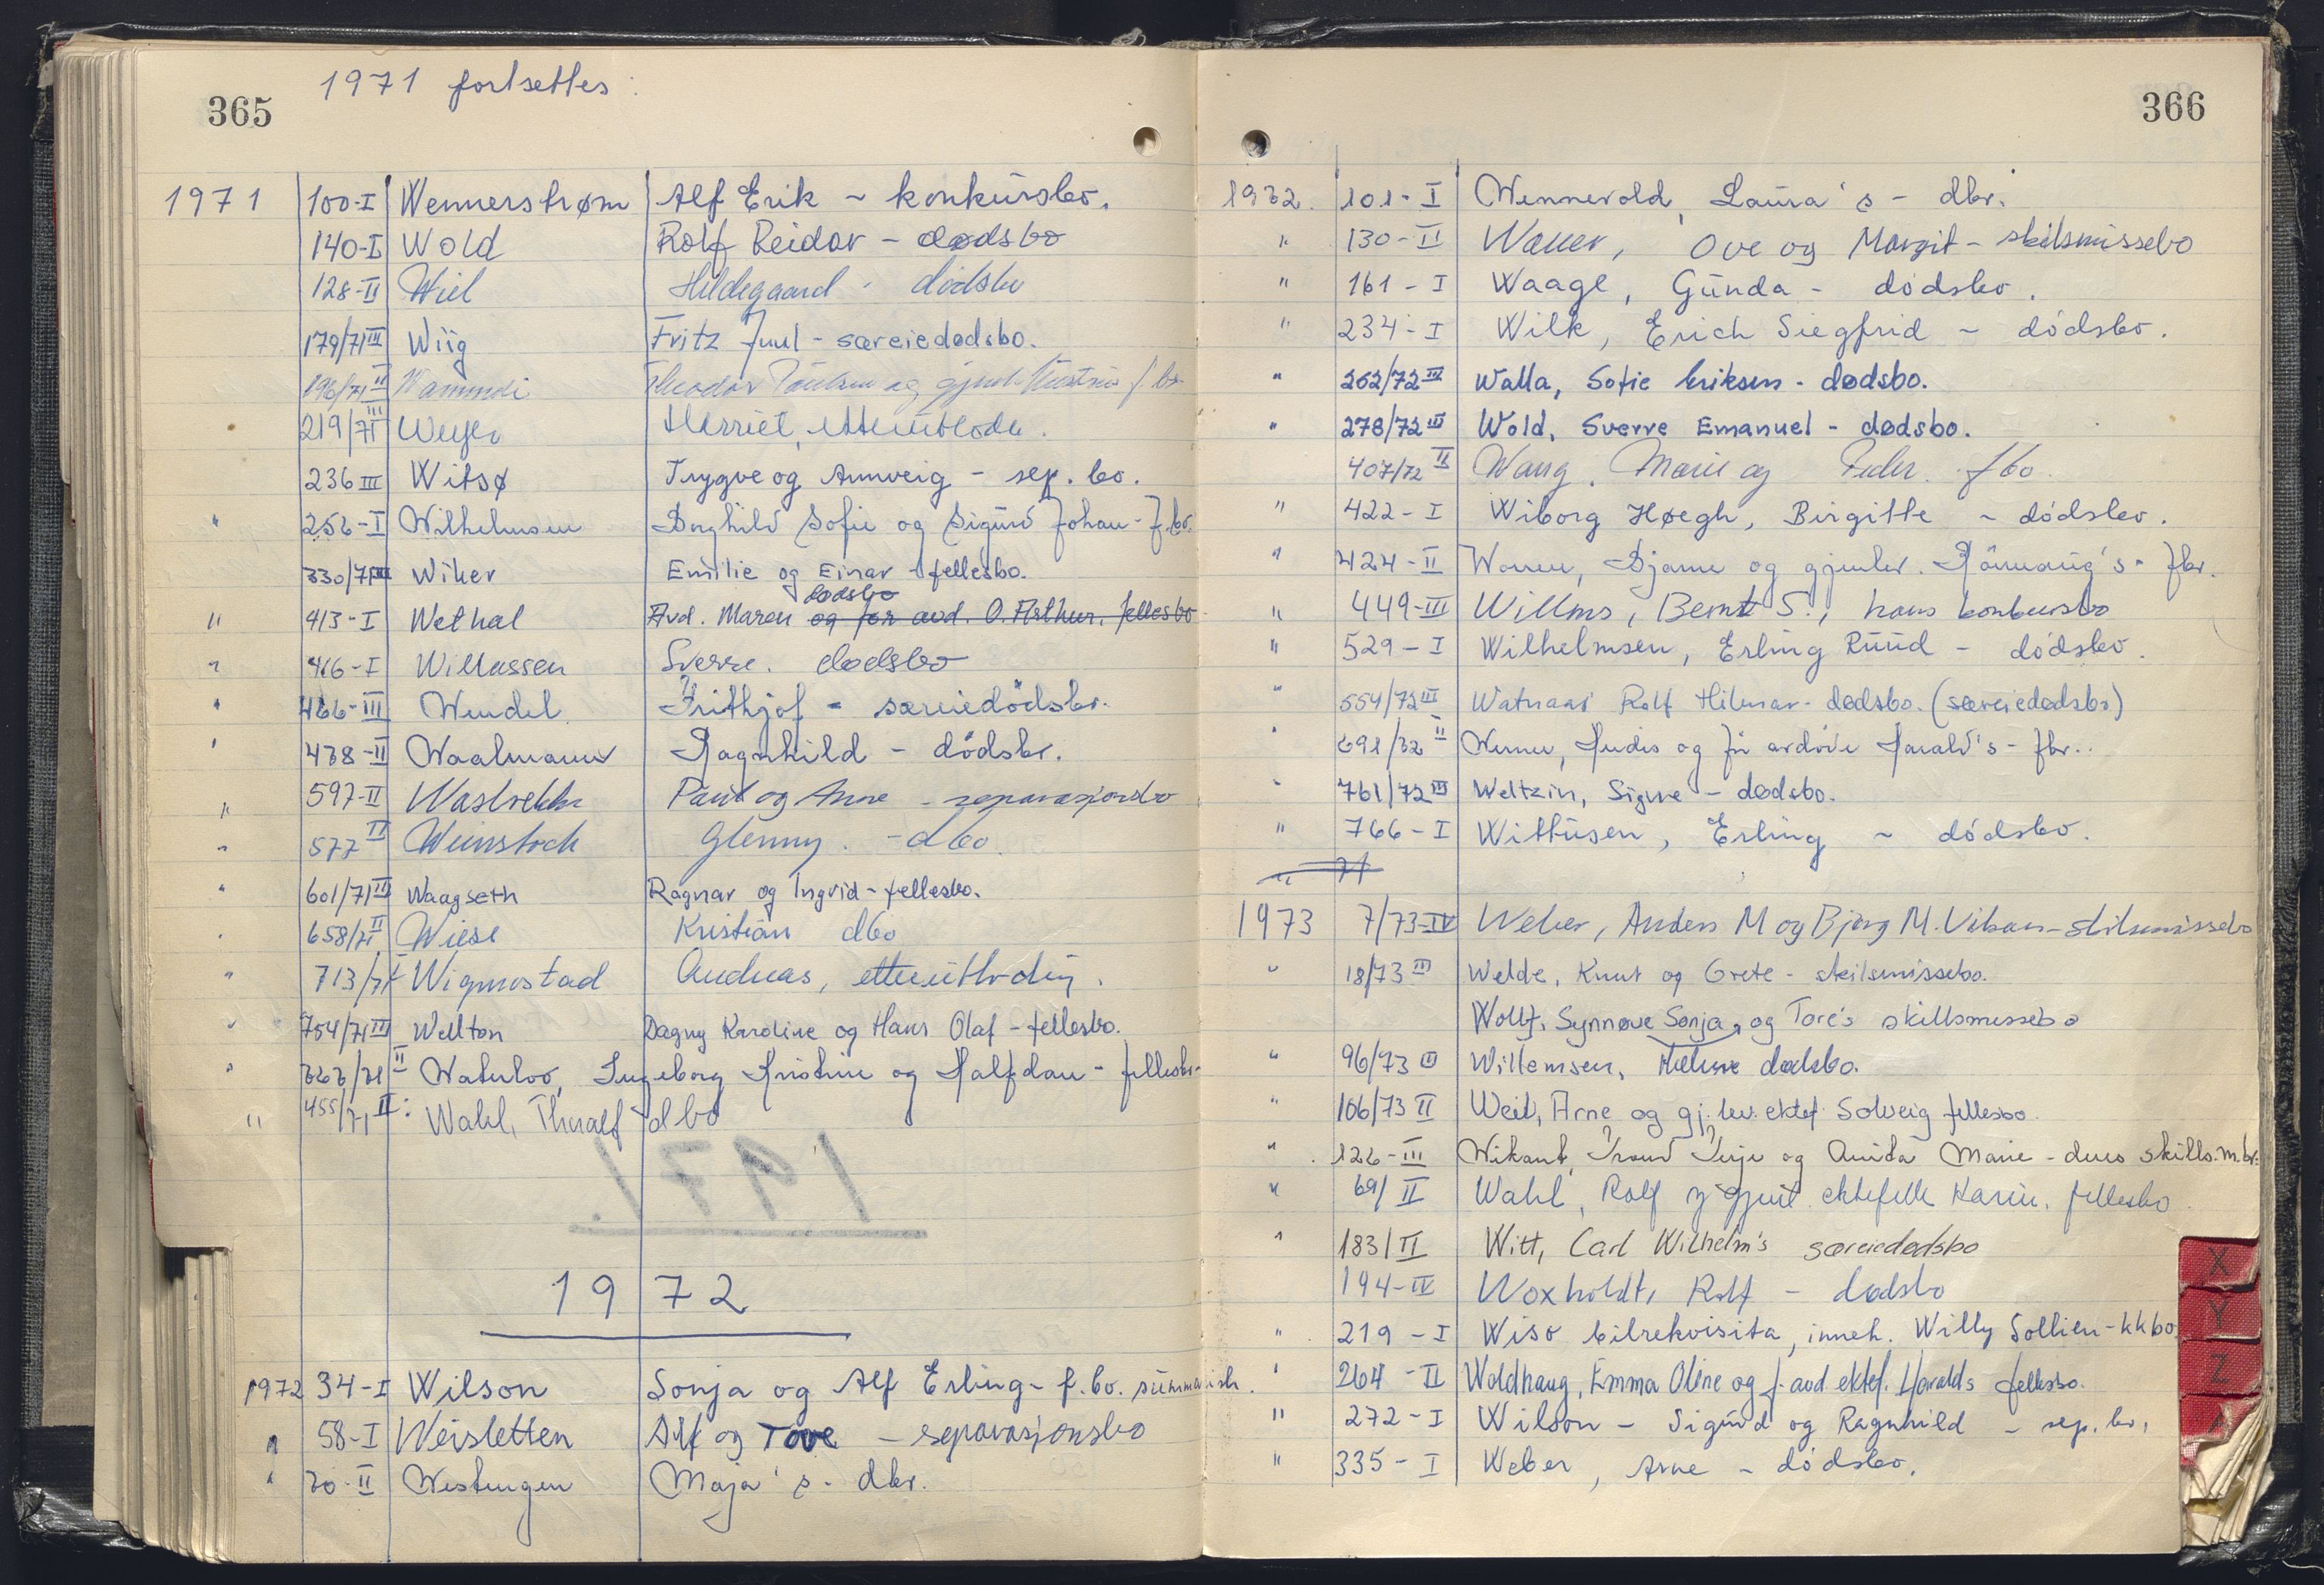 1971 fortsettes:
365
1971 100-I Wennerstrøm Alf Erik - konkursbo.
140-I Wold Rolf Reidar - dødsbo
128-II Wiel Hildegaard - dødsbo
179/71 III Wiig Fritz Juul - særeiedødsbo.
196/71 II
219/71 III Weyer Harriet,
236 III Witsø Trygve og Annveig - sep. bo.
" 256-I Wilhelmsen Borghild Sofie og Sigurd Johan - f.bo.
330/71 III Wiker Emilie og Einar - fellesbo.
dødsbo
" 413-I Wethal Avd. Maren og for avd. O. Arthur, fellesbo
" 416-I Willassen Sverre. dødsbo
" 466-III Wendel Frithjof - særeiedødsbo.
" 438-II Waalmann Ragnhild - dødsbo.
" 597-II Paul og Anne - separasjonsbo
" 577 II Weinstock Glenny. - dbo.
" 601/71 III Waagseth Ragnar og Ingrid - fellesbo.
" 658/71 II Wiese Kristian dbo
" 713/71 Wigmostad Andreas,
" 754/71 III Wellton Dagny Karoline og Hans Olaf - fellesbo.
" II Waterloo, Ingeborg Kristine og Halfdan - fellesbo
" 455/71 II: Wahl, Thoralf dbo
1971.
1972
1972 34-I Wilson Sonja og Alf Erling - f.bo. summarisk.
" 58-I Weisletten Alf og Tove - separasjonsbo
" 70-II Westengen Maja's - dbr.
366
1972. 101-I Wennevold, Laura's - dbr.
" 130-II Waller, Ove og Margit - skilsmissebo
" 161-I Waage, Gunda - dødsbo.
" 234-I Wilk, Erich Siegfrid - dødsbo.
" 262/72 III Walla, Sofie Eriksen - dødsbo.
" 278/72 III Wold, Sverre Emanuel - dødsbo.
407/72 II Wang, Marie og Peder. fbo.
" 422-I Wiborg Høegh, Birgitte - dødsbo.
" 424-II Bjarne og gjenlev. Rønnaug's - fbr.
" 449-III Willms, Bernt S., hans konkursbo
" 529-I Wilhelmsen, Erling Ruud - dødsbo.
" 554/72 III Watnaas Rolf Hilmar - dødsbo. (særeiedødsbo)
" 691/72 II Herdis og for avdøde Harald's - fbr.
" 761/72 III Weltzin, Signe - dødsbo.
" 766-I Witthusen, Erling - dødsbo.
1973 7/73-IV Weber, Anders M og Bjørg M. Vikan - skilsmissebo
" 18/73 III Welde, Knut og Grete - skilsmissebo.
Wolff, Synnøve Sonja, og Tore's skillsmissebo
" 96/73 III Willemsen, Helene dødsbo.
" 106/73 II Weil, Arne og gj.lev. ektef. Solveig fellesbo.
" 126-III Wikant, Trond Terje og Anita Marie - deres skills.m.br.
" 69/II Wahl, Rolf og gjenl. ektefelle Karin. fellesbo.
" 183/II Witt, Carl Wilhelm's særeiedødsbo
194-IV Woxholdt, Rolf - dødsbo
" 219-I Wiso bilrekvisita, inneh. Willy Sollien - kkbo
" 264-II Woldhaug, Emma Oline og f. avd. ektef. Haralds fellesbo.
" 272-I Wilson - Sigurd og Ragnhild - sep. bo.
" 335-I Weber, Arne - dødsbo.
X
Y
Z